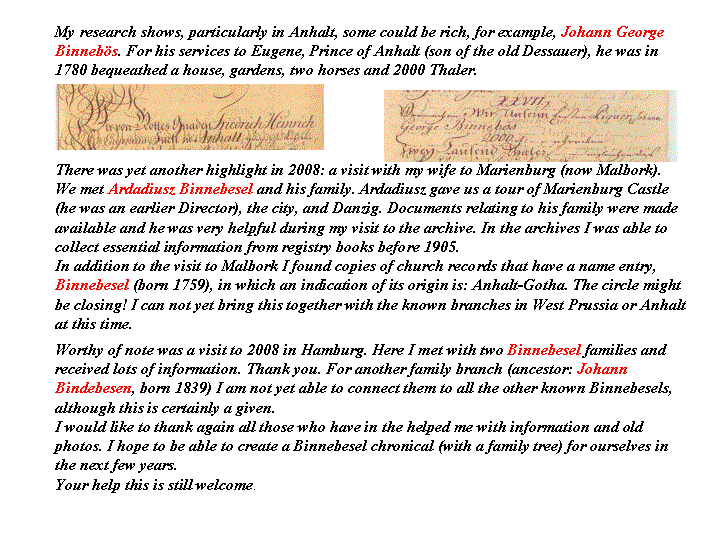 My research shows, particularly in Anhalt, some could be rich, for example, Johann George
Binnebös. For his services to Eugene, Prince of Anhalt (son of the old Dessauer), he was in
1780 bequeathed a house, gardens, two horses and 2000 Thaler.
Friedrich Heinrich
Anhalt
XXVII,
Wir
George Binnebös
2000
Tausend Thaler
There was yet another highlight in 2008: a visit with my wife to Marienburg (now Malbork).
We met Ardadiusz Binnebesel and his family. Ardadiusz gave us a tour of Marienburg Castle
(he was an earlier Director), the city, and Danzig. Documents relating to his family were made
available and he was very helpful during my visit to the archive. In the archives I was able to
collect essential information from registry books before 1905.
In addition to the visit to Malbork I found copies of church records that have a name entry,
Binnebesel (born 1759), in which an indication of its origin is: Anhalt-Gotha. The circle might
be closing! I can not yet bring this together with the known branches in West Prussia or Anhalt
at this time.
Worthy of note was a visit to 2008 in Hamburg. Here I met with two Binnebesel families and
received lots of information. Thank you. For another family branch (ancestor: Johann
Bindebesen, born 1839) I am not yet able to connect them to all the other known Binnebesels,
although this is certainly a given.
I would like to thank again all those who have in the helped me with information and old
photos. I hope to be able to create a Binnebesel chronical (with a family tree) for ourselves in
the next few years.
Your help this is still welcome.